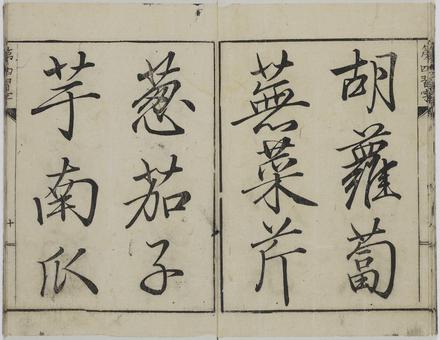 第四習字
胡蘿蔔
蕪菜芹
葱茄子
芋南瓜
第四習字
十